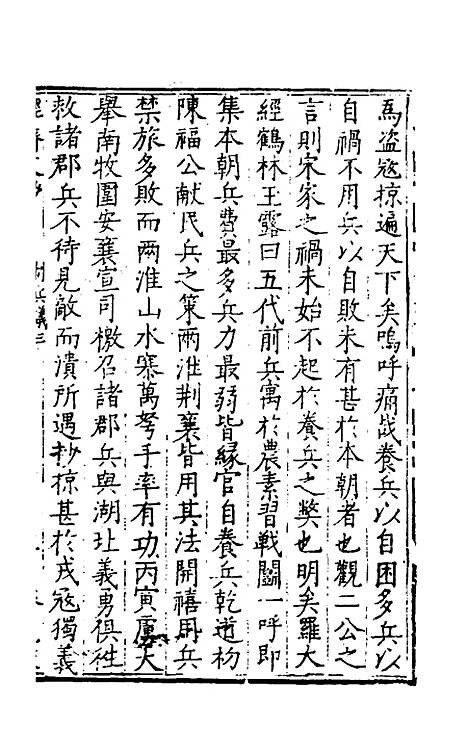 為盜寇掠遍天下矣嗚呼痛哉養兵以自困多兵以
自禍不用兵以自敗未有甚於本朝者也觀二公之
言則宋家之禍未始不起於養兵之獘也明矣羅大
經鶴林玉露曰五代前兵寓於農素習戰鬭一呼即
集本朝兵費最多兵力最弱皆緣官自養兵乾道初
陳福公献民兵之策兩淮荆襄皆用其法開禧用兵
禁旅多敗而兩淮山水寨萬弩手率有功丙寅虜大
舉南牧圍安襄宣司檄召諸郡兵與湖北義勇俱往
救諸郡兵不待見敵而潰所遇抄掠甚於戎寇獨義
制兵議三